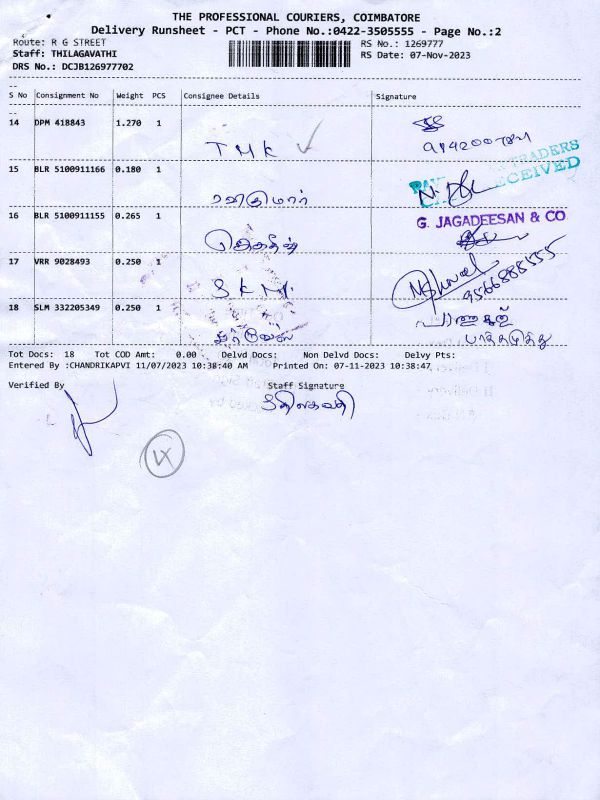 THE PROFESSIONAL COURIERS, COIMBATORE
Delivery Runsheet - PCT - Phone No.:0422-3505555 - Page No.:2
Route: R G STREET RS No.: 1269777
Staff: THILAGAVATHI RS Date: 07-Nov-2023
DRS No.: DCJB126977702
S No Consignment No Weight PCS Consignee Details Signature
14 DPM 418843 1.270 1
TMK
15 BLR 5100911166 0.180 1 TRADERS
RECEIVED
ரவிகுமார்
16 BLR 5100911155 0.265 1 G. JAGADEESAN & CO
17 VRR 9028493 0.250 1
SKM 9566888555
18 SLM 332205349 0.250 1
Tot Docs: 18 Tot COD Amt: 0.00 Delvd Docs: Non Delvd Docs: Delvy Pts:
Entered By :CHANDRIKAPVI 11/07/2023 10:38:40 AM Printed On: 07-11-2023 10:38:47
Verified By Staff Signature